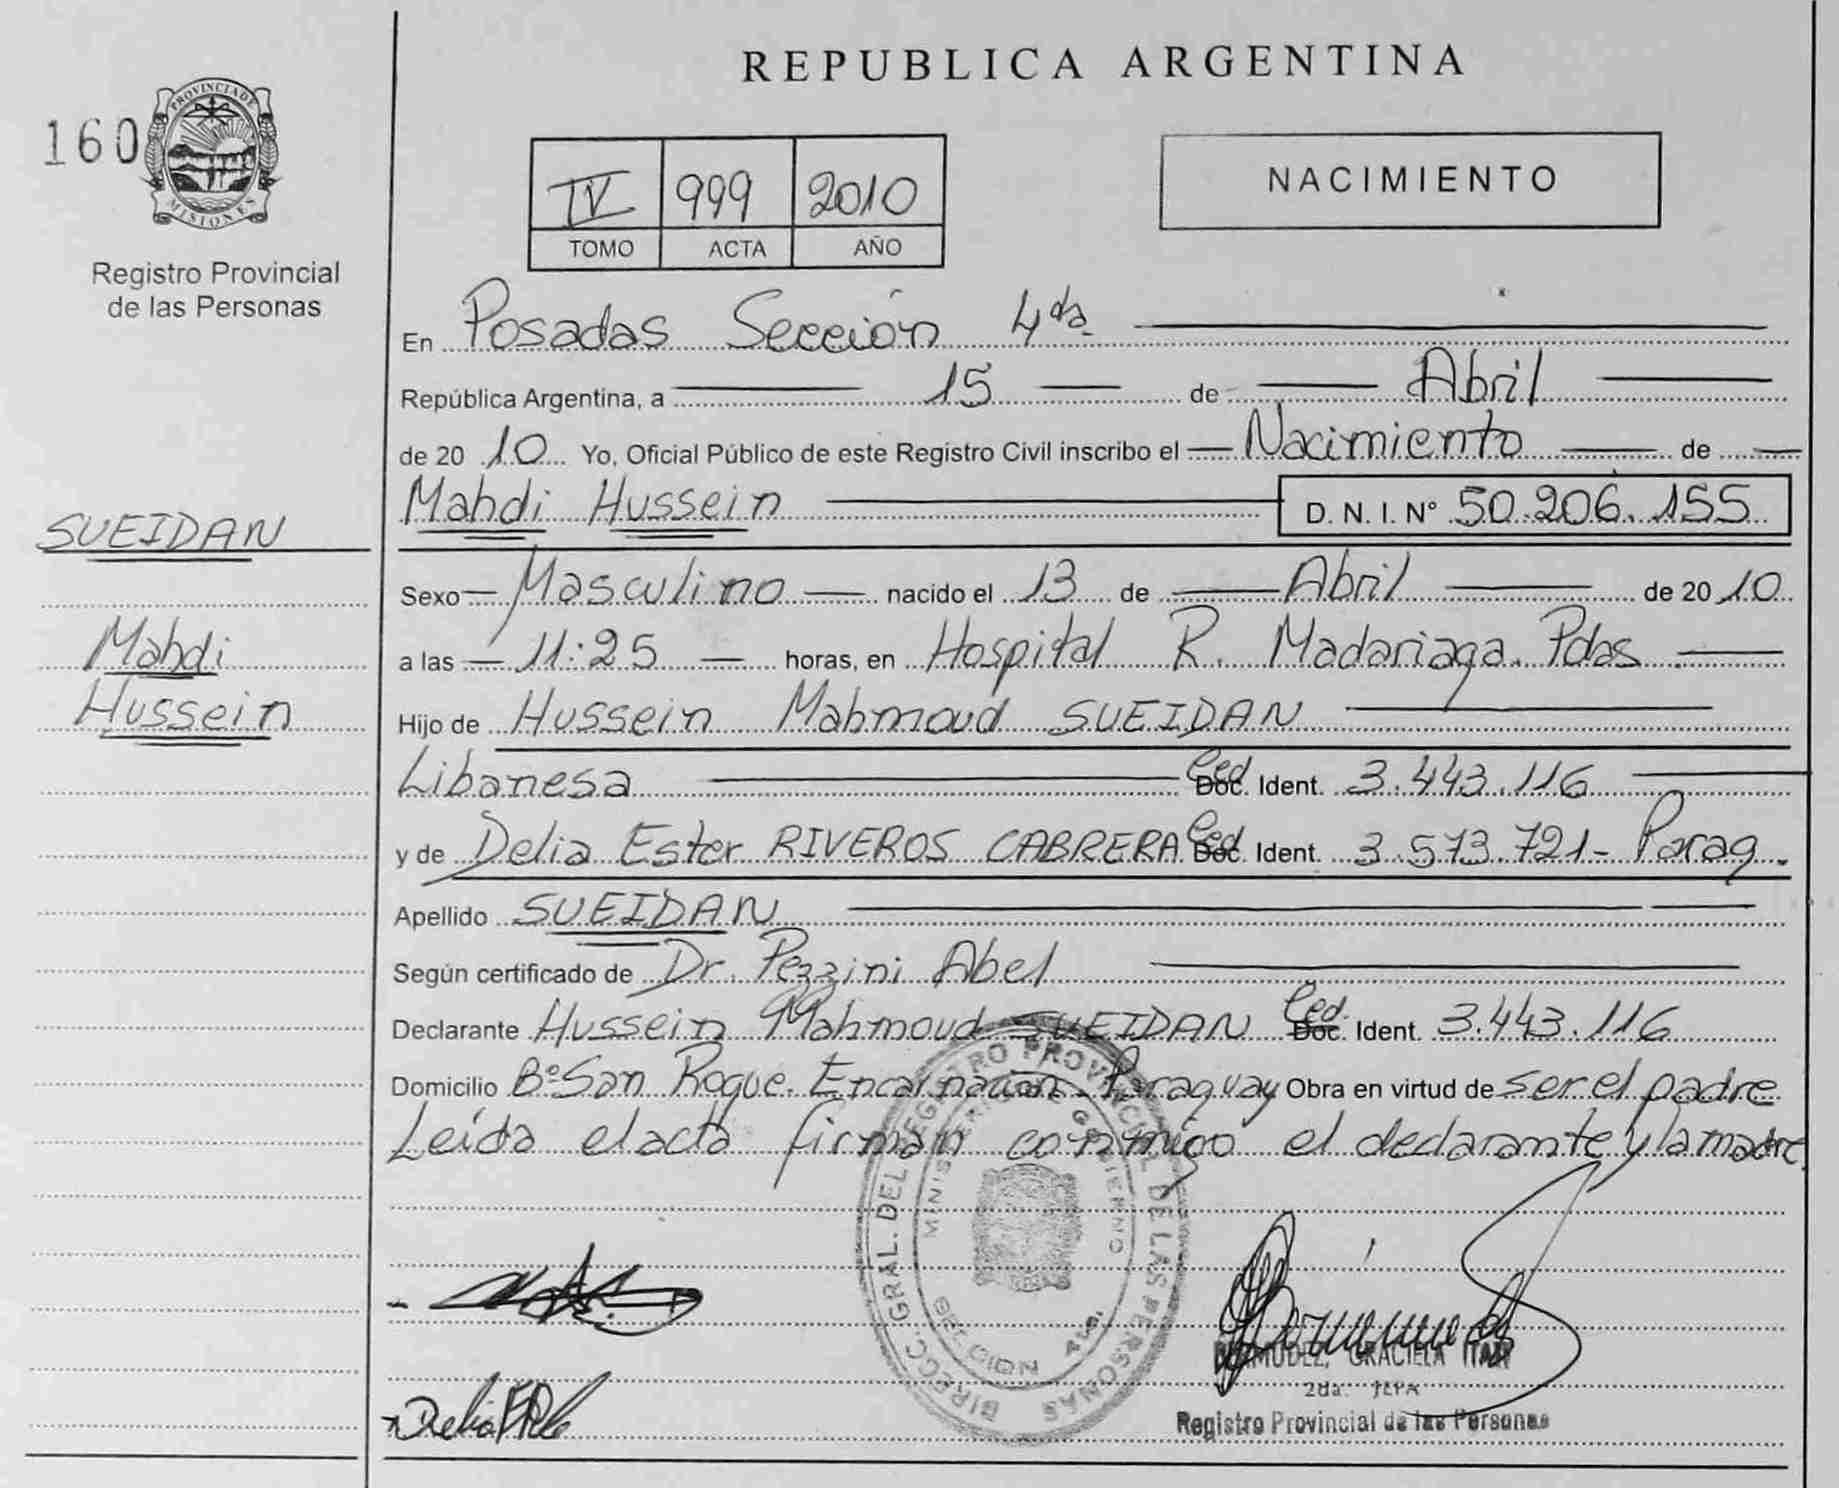 REPUBLICA ARGENTINA
160
PROVINCIA DE MISIONES
Registro Provincial
de las Personas
IV 999 2010
TOMO ACTA AÑO
NACIMIENTO
En Posadas Sección 4da
República Argentina, a 15 de Abril
de 2010 Yo, Oficial Público de este Registro Civil inscribo el Nacimiento de
Mahdi Hussein D. N. I. N° 50.206.155
SUEIDAN
Mahdi
Hussein
Sexo Masculino nacido el 13 de Abril de 2010
a las 11:25 horas, en Hospital R. Madariaga. Pdas
Hijo de Hussein Mahmoud SUEIDAN
Libanesa Ced Doc. Ident. 3.443.116
y de Delia Ester RIVEROS CABRERA Ced Doc. Ident. 3.573.721- Parag.
Apellido SUEIDAN
Según certificado de Dr. Pezzini Abel
Declarante Hussein Mahmoud SUEIDAN Ced. Doc. Ident. 3.443.116
Domicilio B° San Roque. Encarnación. Paraguay Obra en virtud de ser el padre
Leída el acta firman conmigo el declarante y la madre.
DIRECC. GRAL. DEL REGISTRO PROVINCIAL DE LAS PERSONAS
MINISTERIO DE GOBIERNO
SECCION 4ta.
BERMUDEZ, GRACIELA ITATI
2da. JEFA
Registro Provincial de las Personas
Delia